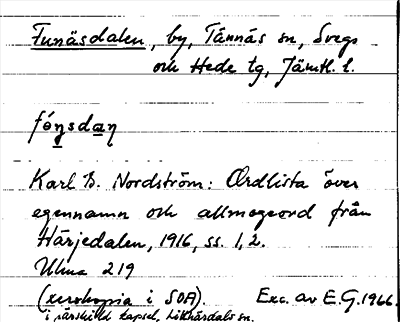 Funäsdalen, by, Tännäs sn, Svegs
och Hede tg, Jämtl. l.
fó̱ṇsda̱ṇ
Karl B. Nordström: Ordlista över
egennamn och allmogeord från
Härjedalen, 1916, ss. 1, 2.
Ulma 219
(xerokopia i SOA). Exc. av E.G. 1966.
i särskild kapsel, Lillhärdals sn.